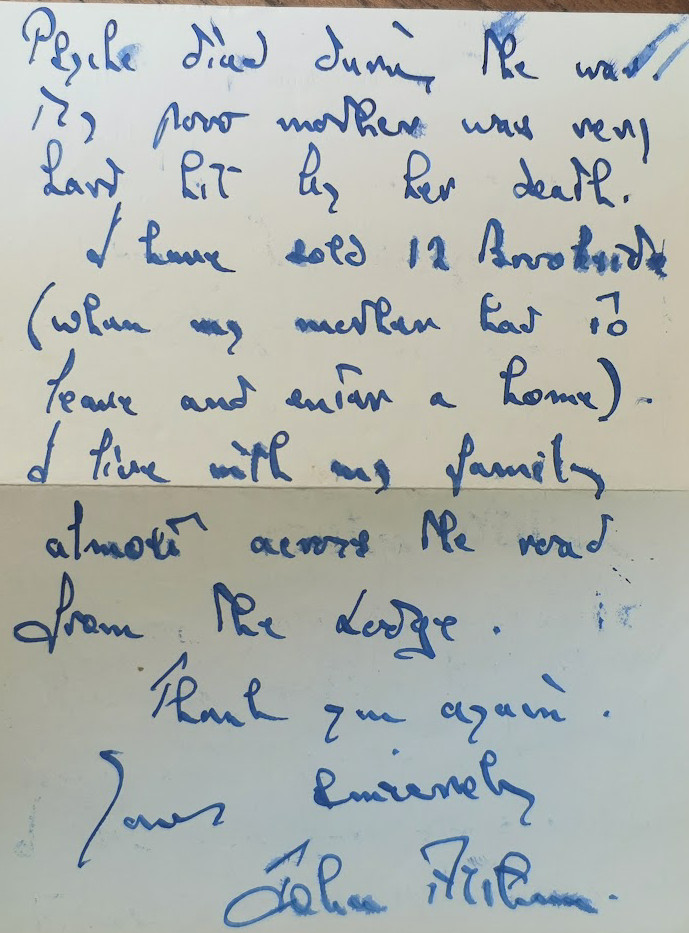 Psyche died during the war.
My poor mother was very
hard hit by her death.
I have sold 12 Brookside
(when my mother had to
leave and enter a home).
I live with my family
almost across the road
from the Lodge.
Thank you again.
Yours Sincerely
John